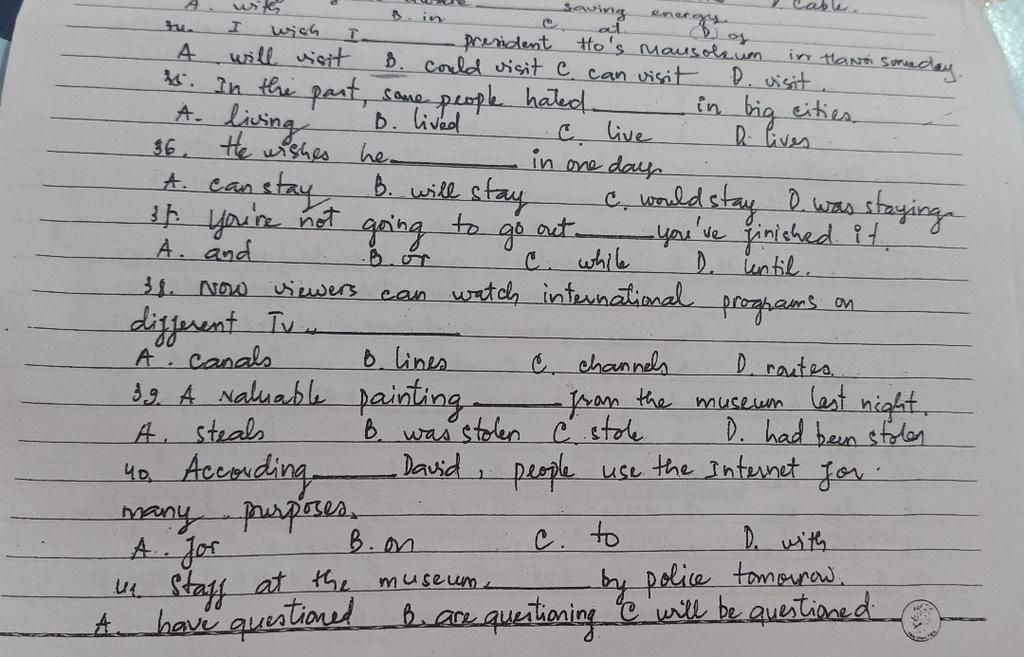 A. with B. in saving energy. cable.
C. at D. of
34. I wish I ______ president Ho's Mausoleum in Hanoi someday.
A will visit B. could visit C. can visit D. visit.
35. In the past, some people hated ______ in big cities.
A. living B. lived C. live D. lives
36. He wishes he ______ in one day
A. can stay B. will stay C. would stay D. was staying
37. You're not going to go out ______ you've finished it.
A. and B. or C. while D. until.
38. Now viewers can watch international programs on
different TV ______
A. canals B. lines C. channels D. routes.
39. A valuable painting ______ from the museum last night.
A. steals B. was stolen C. stole D. had been stolen
40. According ______ David, people use the Internet for
many purposes.
A. for B. on C. to D. with
41. Staff at the museum ______ by police tomorrow.
A. have questioned B. are questioning C will be questioned